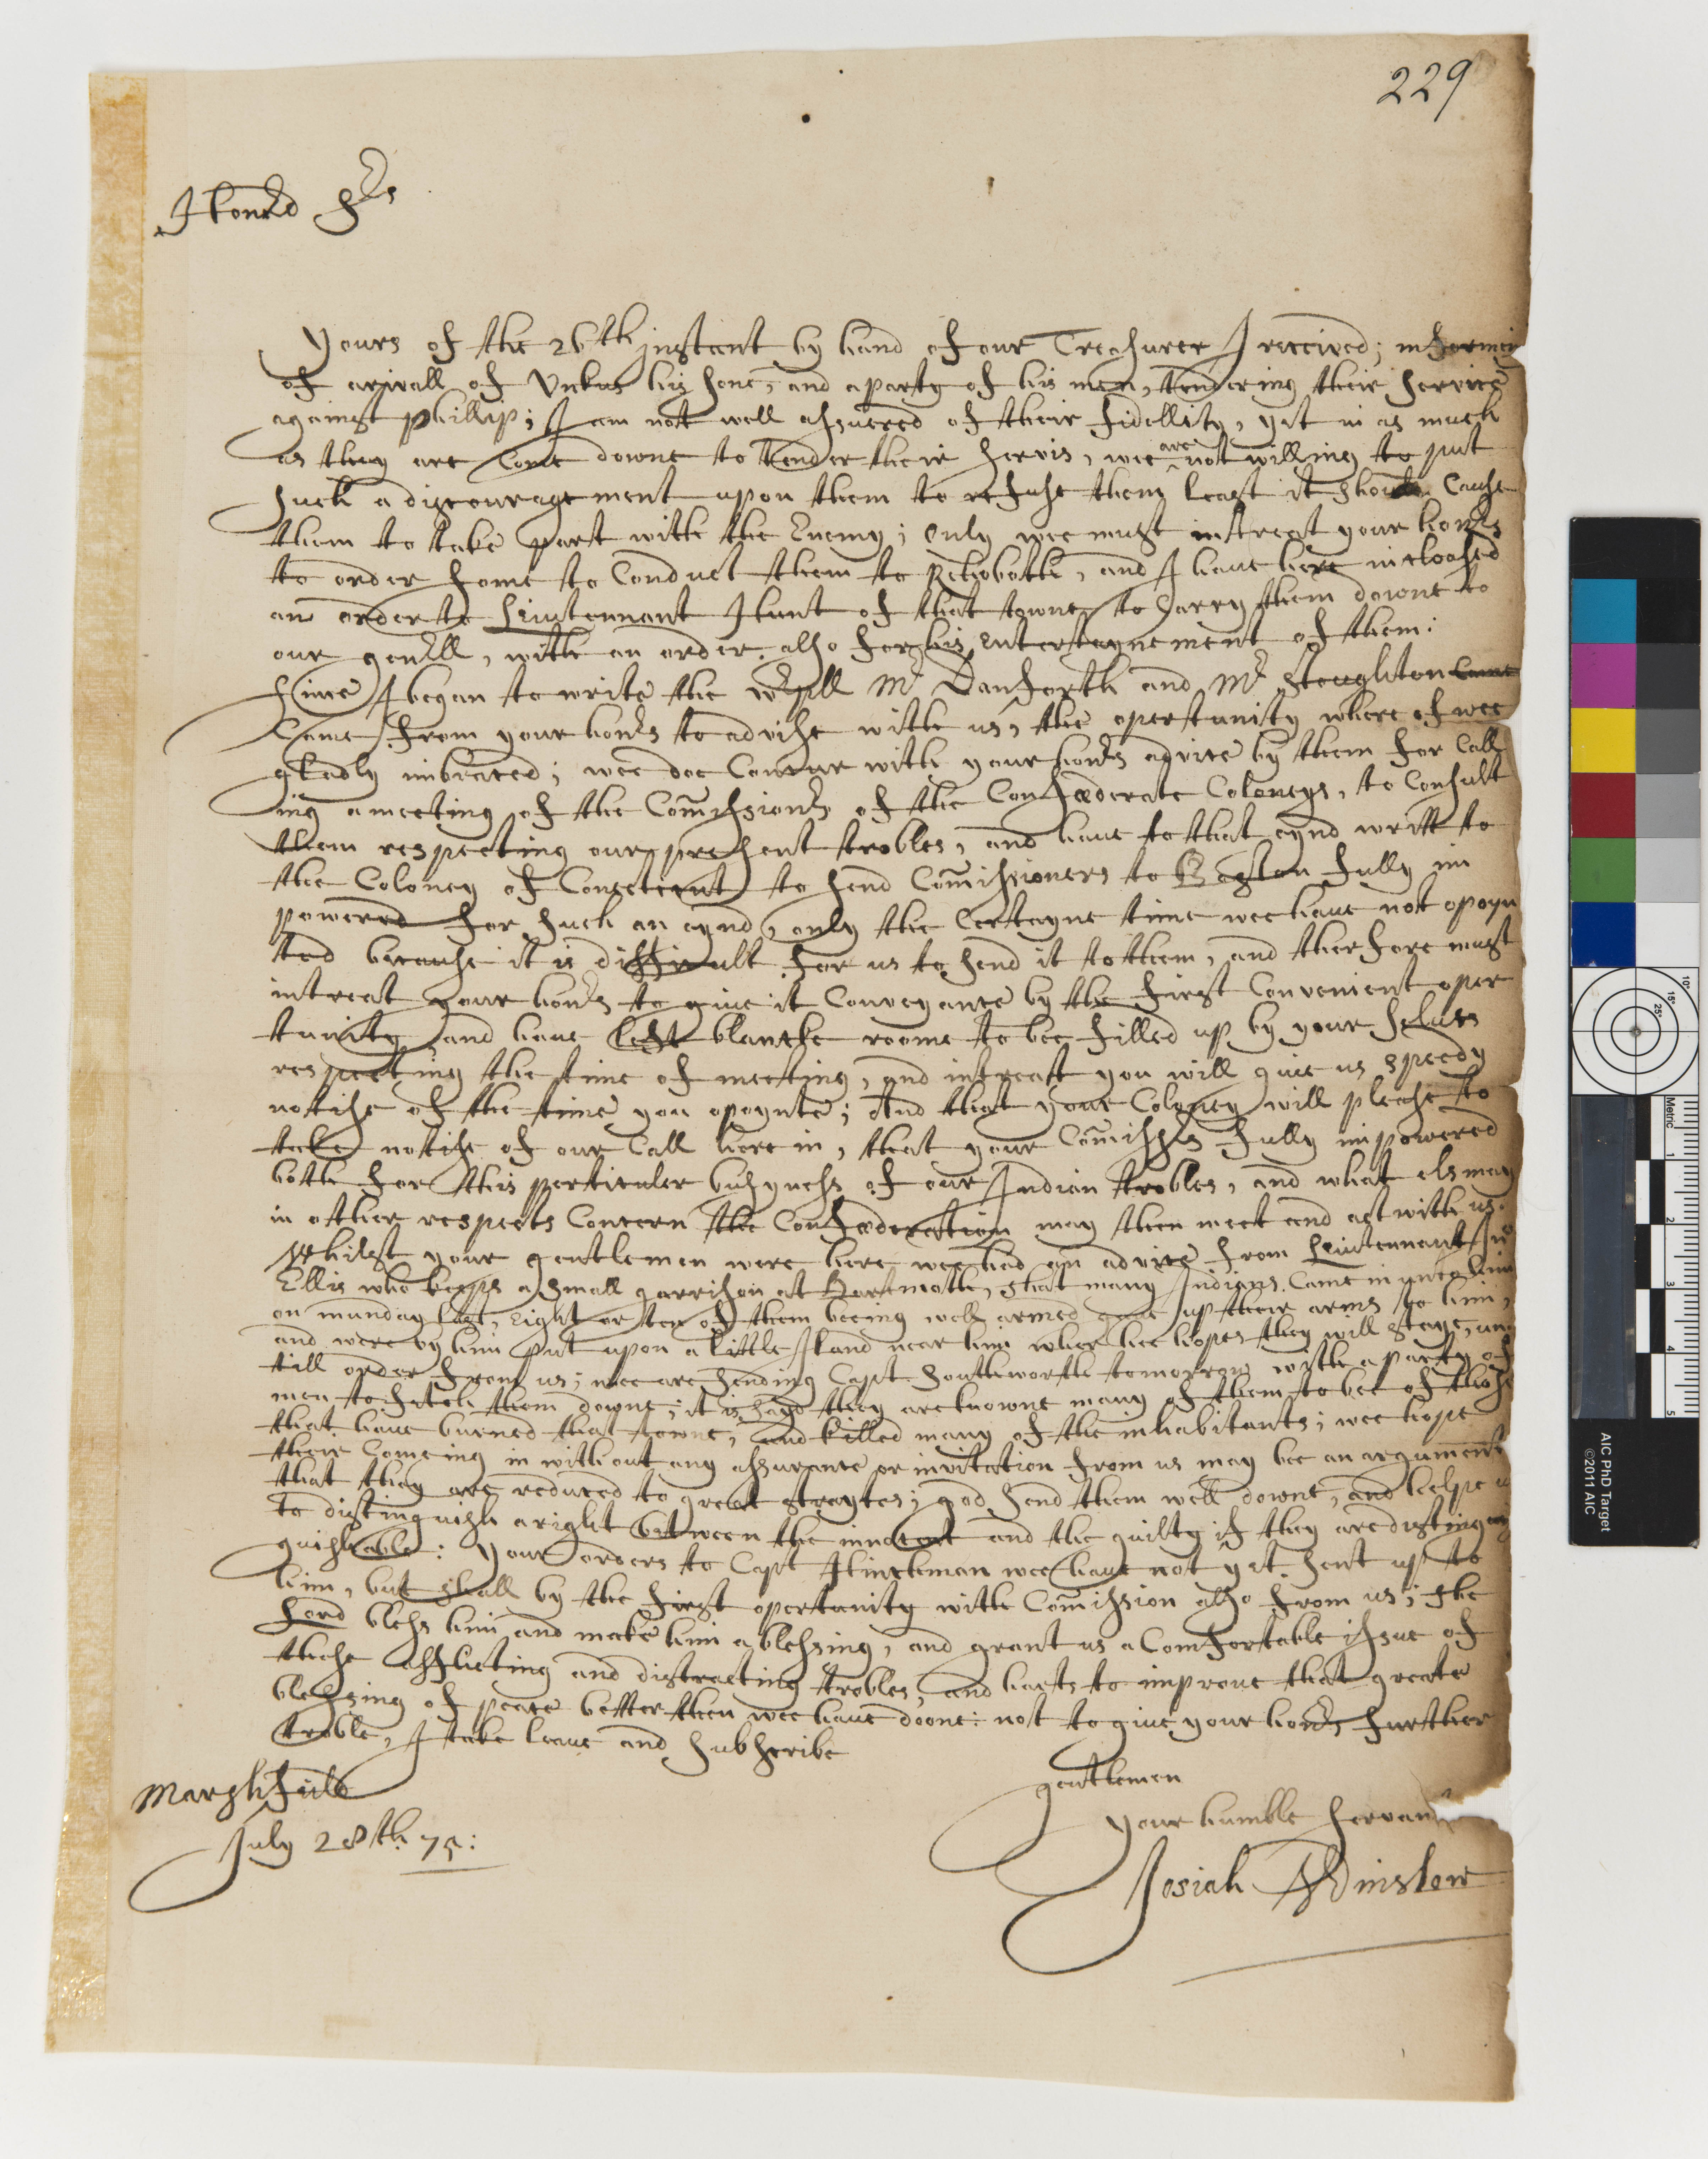 229
Honrd Srs
Yours of the 26th instant by hand of our Treasurer I received; informing
of arivall of Vnkus his sone, and a party of his men, tendering their service
against phillip; I am not well assuered of their fidellity, yet in as much
as they are Come downe to tender their servis, wee are not willing to put
such a discouragement upon them to refuse them least it should Cause
them to take part with the Enemy; only wee must intreat your honrs
to order some to Conduct them to Rehoboth, and I haue here incloased
an order to Leiutennant Hunt of that towne to Carry them downe to
our genrll, with an order also for his entertaynement of them:
since I began to write the wrpll Mr Danforth and Mr Stoughton Came
Came from your honrs to advise with us, the opertunity where of wee
gladly imbraced; wee doe Concur with your honrs advice by them for Call
ing a meeting of the Comissionrs of the Confœderate Coloneys, to Consult
them respecting our present trobles, and haue to that eynd writt to
the Coloney of Conecticut to send Comissioners to Boston fully im
powered for such an eynd, only the Certayne time wee haue not opoyn
ted because it is difficult for us to send it to them, and therfore must
intreat your honrs to giue it Conveyance by the first Convenient oper
tunity and haue left blancke roome to bee filled up by your selues
respecting the time of meeting, and intreat you will giue us speedy
notise of the time you opoynte; And that your Coloney will please to
take notise of our Call here in, that your Comissrs fully impowered
both for this perticuler busyness of our Indian trobles, and what els may
in other respects Concern the Confœderation may then meet and act with us.
Whilst your gentlemen were here wee had an advice from Leiutennant Jno
Ellis who keeps a small garrison at Dartmoth, that many Indians Came in unto him
on munday last, eight or ten of them beeing well armed gaue up their arms to him,
and were by him put upon a little Iland near him wher hee hopes they will staye, un
till order from us; wee are sending Capt Southworth tomorrow with a party of
men to fetch them downe; it is sayd they are knowne many of them to bee of those
that haue burned that towne, and killed many of the inhabitants; wee hope
their Comeing in without any assurance or invitation from us may bee an argument
that they are reduced to great straytes; god send them well downe, and helpe us
to distinguish aright between the innocent and the guilty if they are disting
guishable: Your orders to Capt Hinckman wee haue not yet sent up to
him, but shall by the first opertunity with Comission also from us; the
Lord bless him and make him a blessing, and grant us a Comfortable issue of
these afflicting and distracting trobles, and harts to improue that greate
blessing of peace better then wee haue doone: not to giue your honrs further
troble, I take leaue and subscribe
gentlemen
Your humble servant
Josiah Winslow
Marshfeild
July 28th: 75:
Metric
1
2
3
4
5
10°
15°
25°
AIC PhD Target
©2011 AIC